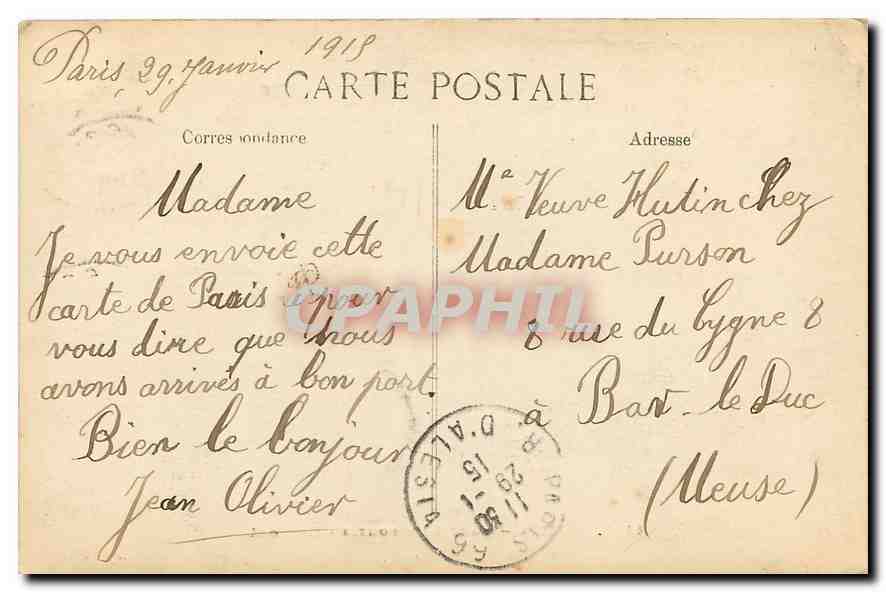 Paris, 29, Janvier 1915
CARTE POSTALE
Correspondance
Madame
Je vous envoie cette
carte de Paris pour
vous dire que nous
avons arrivés à bon port.
Bien le bonjour
Jean Olivier
Adresse
Me Veuve Hutin Chez
Madame Purson
8 rue du Cygne 8
à Bar-le Duc
(Meuse)
CPAPHIL
PARIS 99 R. D'ALESIA
11 30
29 -1
15